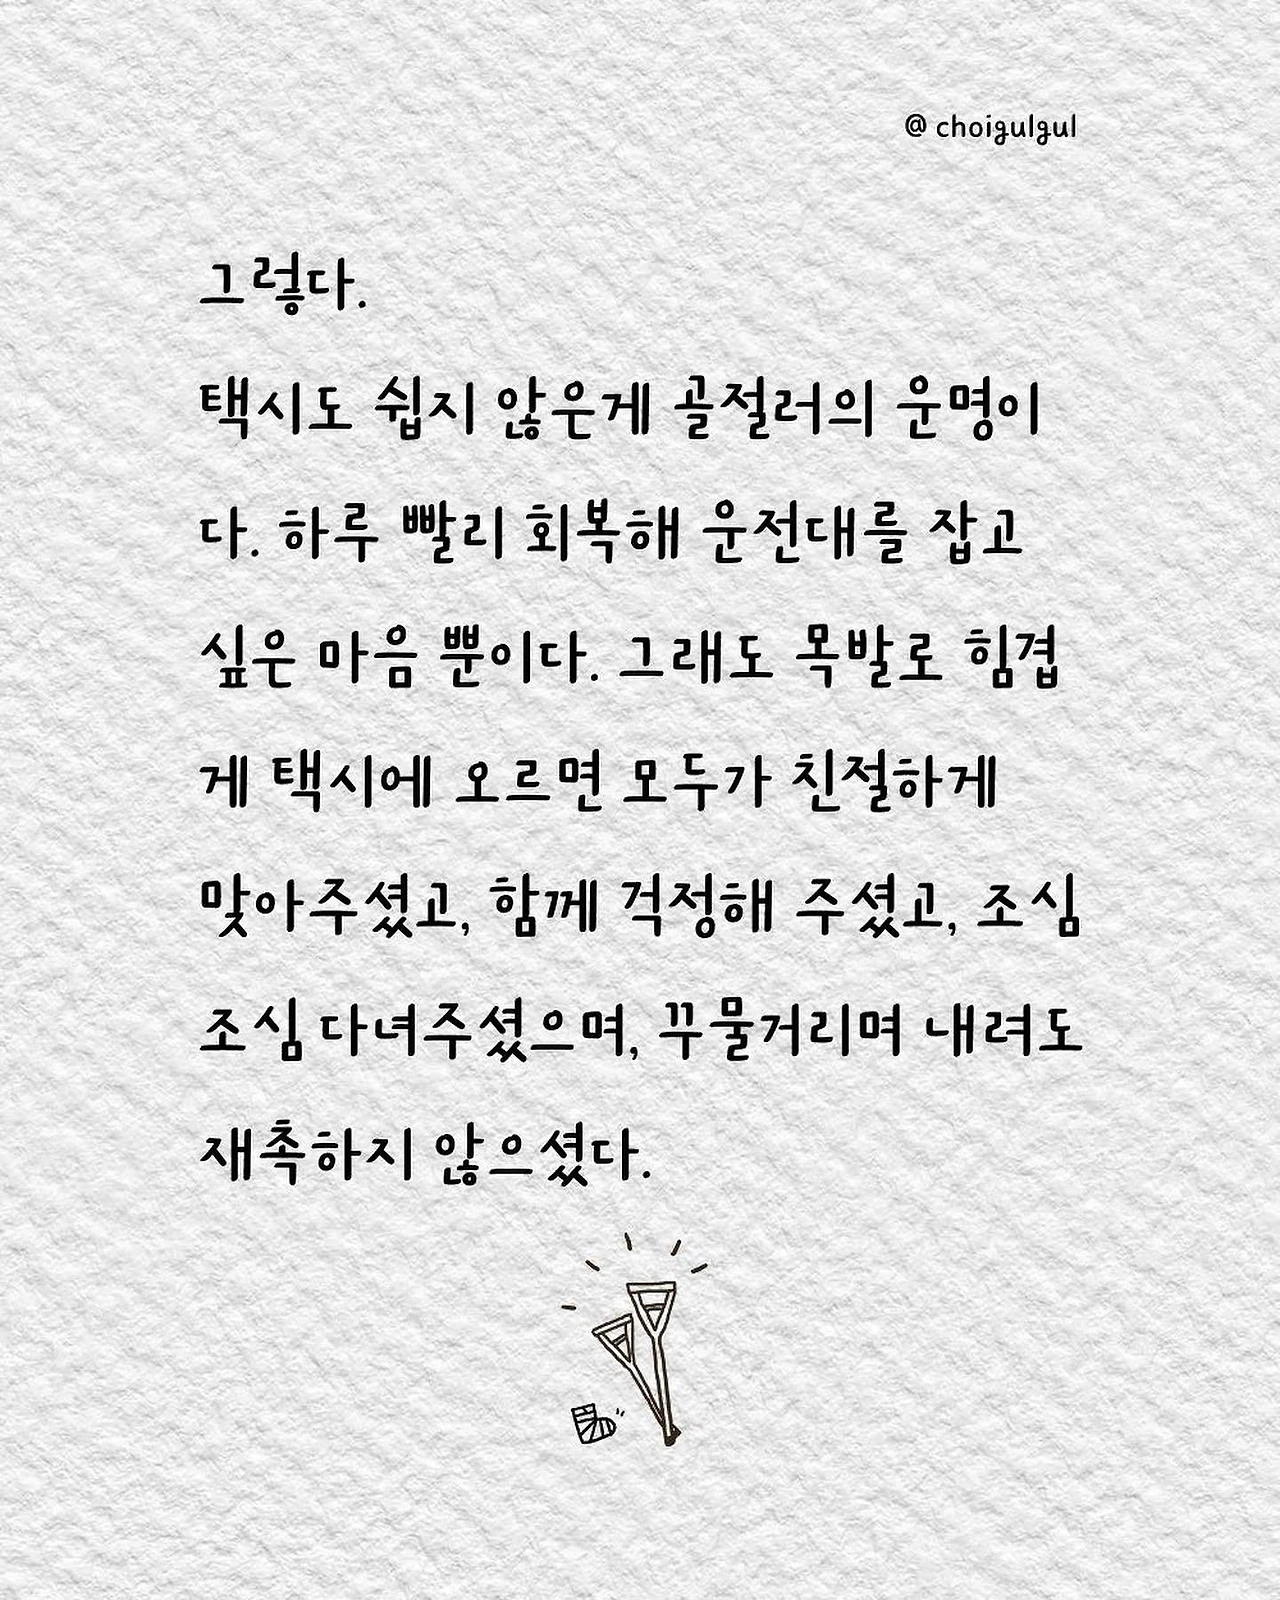 @ choigulgul
그렇다.
택시도 쉽지 않은게 골절러의 운명이
다. 하루 빨리 회복해 운전대를 잡고
싶은 마음 뿐이다. 그래도 목발로 힘겹
게 택시에 오르면 모두가 친절하게
맞아주셨고, 함께 걱정해 주셨고, 조심
조심 다녀주셨으며, 꾸물거리며 내려도
재촉하지 않으셨다.